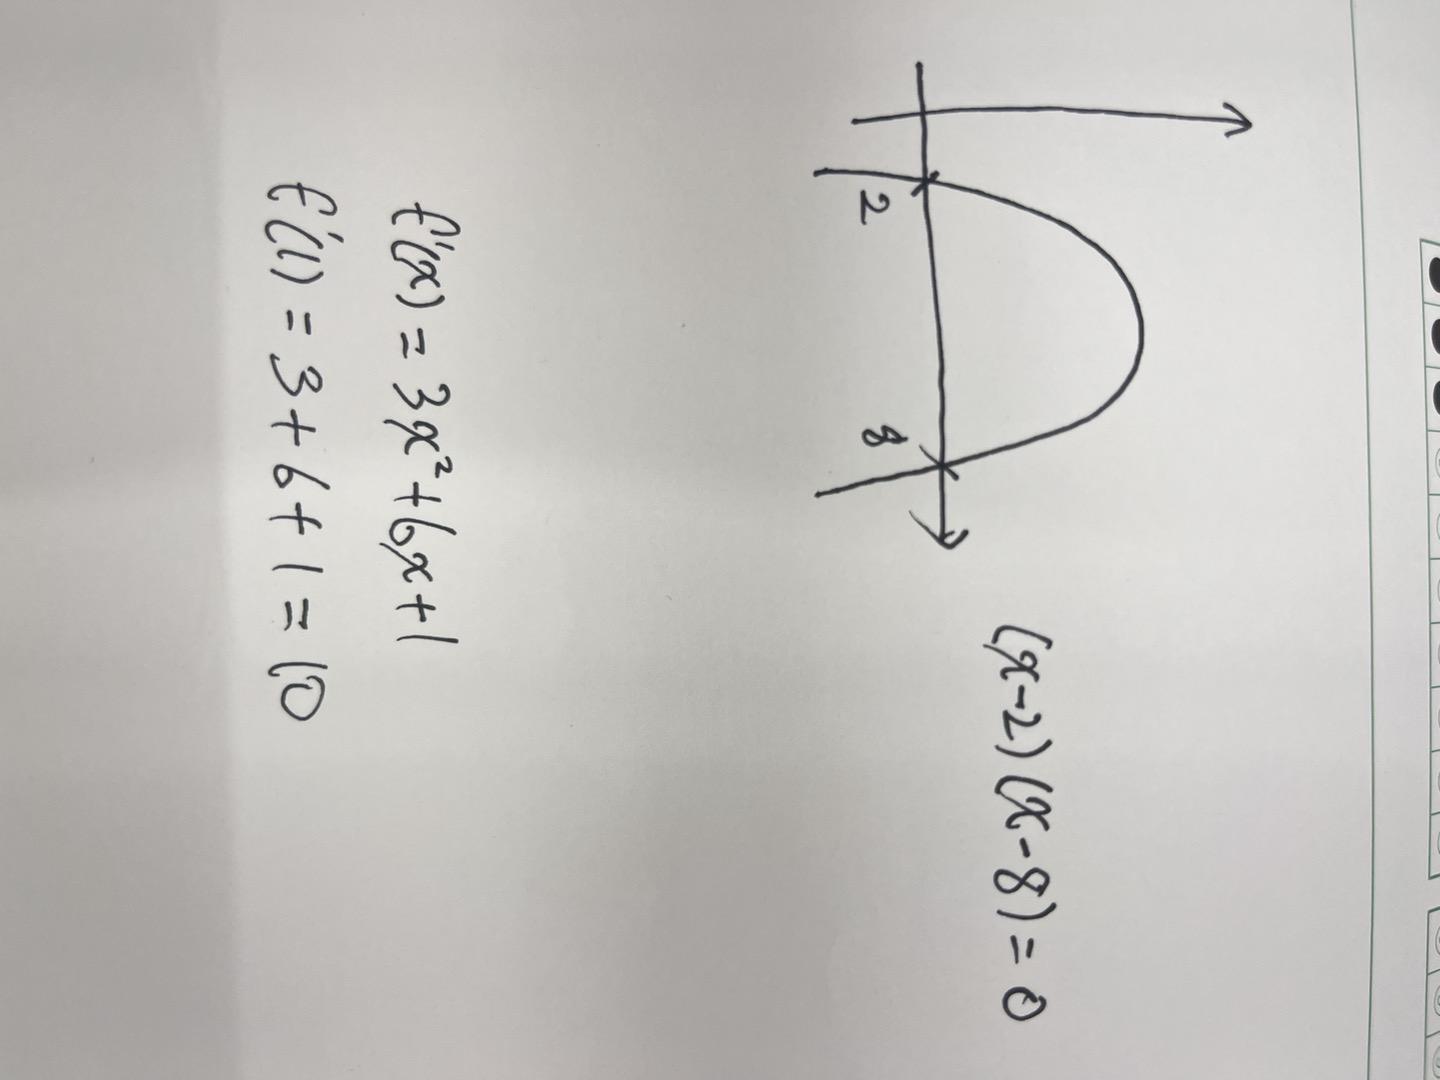 2
8
(x-2)(x-8)=0
f'(x)=3x²+6x+1
f'(1)=3+6+1=10